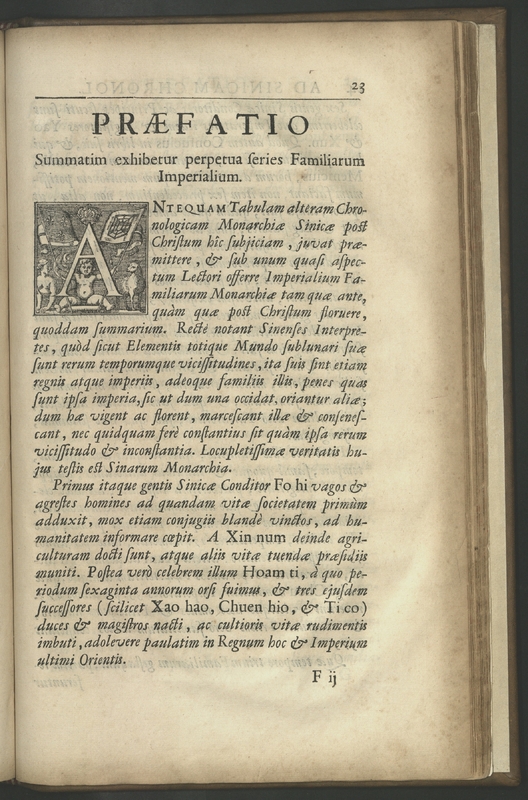 23
PRÆFATIO
Summatim exhibetur perpetua ſeries Familiarum
Imperialium.
ANTEQUAM Tabulam alteram Chro-
nologicam Monarchiæ Sinicæ poſt
Chriſtum hic ſubjiciam, juvat præ-
mittere, & ſub unum quaſi aſpec-
tum Lectori offerre Imperialium Fa-
miliarum Monarchiæ tam quæ ante,
quàm quæ poſt Chriſtum floruere,
quoddam ſummarium. Rectè notant Sinenſes Interpre-
tes, quòd ſicut Elementis totique Mundo ſublunari ſuæ
ſunt rerum temporumque viciſſitudines, ita ſuis ſint etiam
regnis atque imperiis, adeoque familiis illis, penes quas
ſunt ipſa imperia, ſic ut dum una occidat, oriantur aliæ;
dum hæ vigent ac florent, marceſcant illæ & conſeneſ-
cant, nec quidquam ferè conſtantius ſit quàm ipſa rerum
viciſſitudo & inconſtantia. Locupletiſſimæ veritatis hu-
jus teſtis eſt Sinarum Monarchia.
Primus itaque gentis Sinicæ Conditor Fo hi vagos &
agreſtes homines ad quandam vitæ ſocietatem primùm
adduxit, mox etiam conjugiis blandè vinctos, ad hu-
manitatem informare cœpit. A Xin num deinde agri-
culturam docti ſunt, atque aliis vitæ tuendæ præſidiis
muniti. Poſtea verò celebrem illum Hoam ti, à quo pe-
riodum ſexaginta annorum orſi fuimus, & tres ejuſdem
ſucceſſores (ſcilicet Xao hao, Chuen hio, & Ti co)
duces & magiſtros nacti, ac cultioris vitæ rudimentis
imbuti, adolevere paulatim in Regnum hoc & Imperium
ultimi Orientis.
F ij